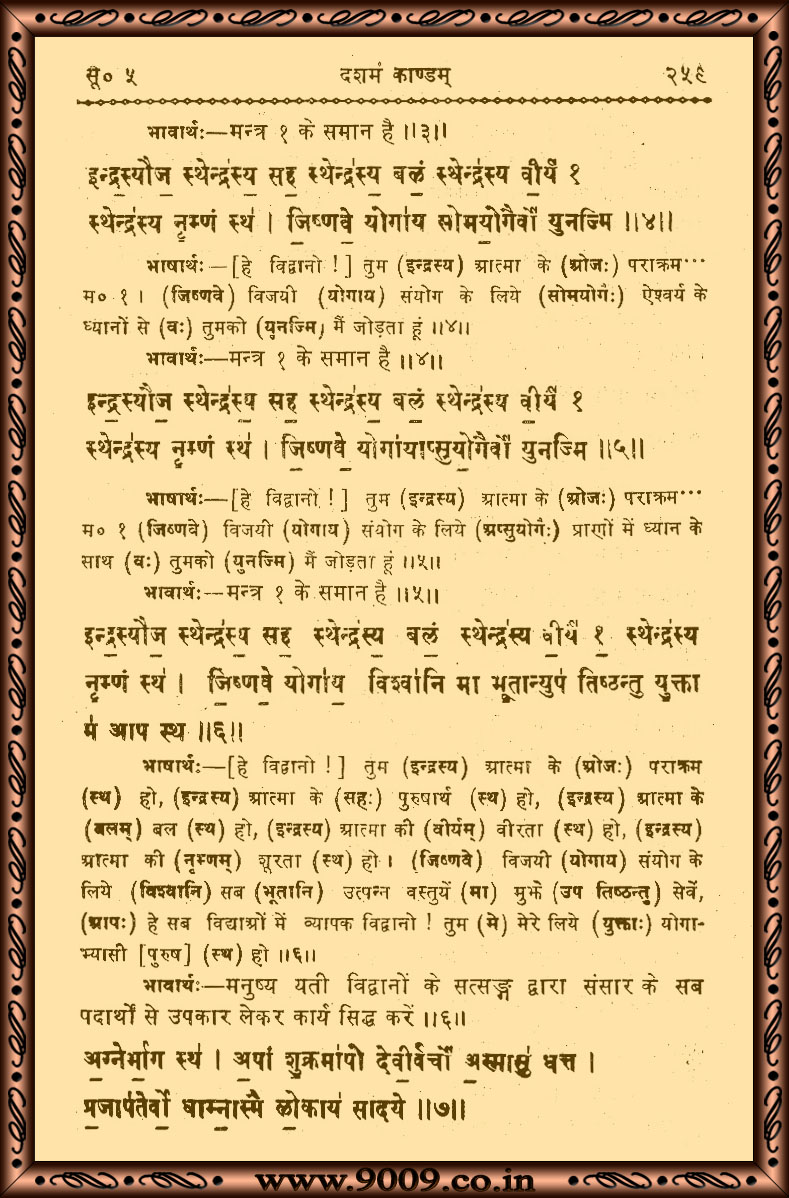 सू० ५ दशमं काण्डम् २५९
भावार्थः—मन्त्र १ के समान है ॥३॥
इन्द्र॒स्यौज॒ स्थेन्द्र॑स्य॒ सह॒ स्थेन्द्र॑स्य॒ बलं॒ स्थेन्द्र॑स्य वी॒र्यं॑ १
स्थेन्द्र॑स्य नृ॒म्णं स्थ॑ । जि॒ष्णवे॒ योगा॑य सोमयो॒गैर्वो॑ युनज्मि ॥४॥
भाषार्थः—[हे विद्वानो ! ] तुम (इन्द्रस्य) आत्मा के (ओजः) पराक्रम···
म० १ । (जिष्णवे) विजयी (योगाय) संयोग के लिये (सोमयोगैः) ऐश्वर्य के
ध्यानों से (वः) तुमको (युनज्मि) मैं जोड़ता हूं ॥४॥
भावार्थः—मन्त्र १ के समान है ॥४॥
इन्द्र॒स्यौज॒ स्थेन्द्र॑स्य॒ सह॒ स्थेन्द्र॑स्य॒ बलं॒ स्थेन्द्र॑स्य वी॒र्यं॑ १
स्थेन्द्र॑स्य नृ॒म्णं स्थ॑ । जि॒ष्णवे॒ योगा॑याप्सुयो॒गैर्वो॑ युनज्मि ॥५॥
भाषार्थः—[हे विद्वानो ! ] तुम (इन्द्रस्य) आत्मा के (ओजः) पराक्रम···
म० १ (जिष्णवे) विजयी (योगाय) संयोग के लिये (अप्सुयोगैः) प्राणों में ध्यान के
साथ (वः) तुमको (युनज्मि) मैं जोड़ता हूं ॥५॥
भावार्थः—मन्त्र १ के समान है ॥५॥
इन्द्र॒स्यौज॒ स्थेन्द्र॑स्य॒ सह॒ स्थेन्द्र॑स्य॒ बलं॒ स्थेन्द्र॑स्य वी॒र्यं॑ १॒ स्थेन्द्र॑स्य
नृ॒म्णं स्थ॑ । जि॒ष्णवे॒ योगा॑य॒ विश्वा॑नि मा भू॒तान्युप॑ तिष्ठन्तु यु॒क्ता
म॑ आप स्थ ॥६॥
भाषार्थः—[हे विद्वानो ! ] तुम (इन्द्रस्य) आत्मा के (ओजः) पराक्रम
(स्थ) हो, (इन्द्रस्य) आत्मा के (सहः) पुरुषार्थ (स्थ) हो, (इन्द्रस्य) आत्मा के
(बलम्) बल (स्थ) हो, (इन्द्रस्य) आत्मा की (वीर्यम्) वीरता (स्थ) हो, (इन्द्रस्य)
आत्मा की (नृम्णम्) शूरता (स्थ) हो । (जिष्णवे) विजयी (योगाय) संयोग के
लिये (विश्वानि) सब (भूतानि) उत्पन्न वस्तुयें (मा) मुझे (उप तिष्ठन्तु) सेवें,
(आपः) हे सब विद्याओं में व्यापक विद्वानो ! तुम (मे) मेरे लिये (युक्ताः) योगा-
भ्यासी [पुरुष] (स्थ) हो ॥६॥
भावार्थः—मनुष्य यती विद्वानों के सत्सङ्ग द्वारा संसार के सब
पदार्थों से उपकार लेकर कार्य सिद्ध करें ॥६॥
अ॒ग्नेर्भा॒ग स्थ॑ । अ॒पां शु॒क्रमा॑पो देवी॒र्वर्चो॑ अ॒स्मासु॑ धत्त ।
प्र॒जाप॑तेर्वो॒ धाम्ना॒स्मै लो॒काय॑ सादये ॥७॥
www.9009.co.in